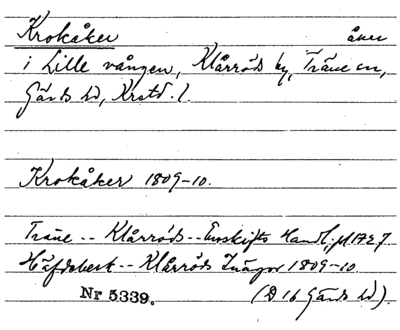 Krokåker åker
i Lille vången, Klårröds by, Träne sn,
Gärds hd, Krstd. l.
Krokåker 1809-10.
Träne -- Klårröds -- Enskifts Handl.;
Häfdebeskr -- Klårröds Inägor 1809-10
Nr 5339. (D 16 Gärds hd).